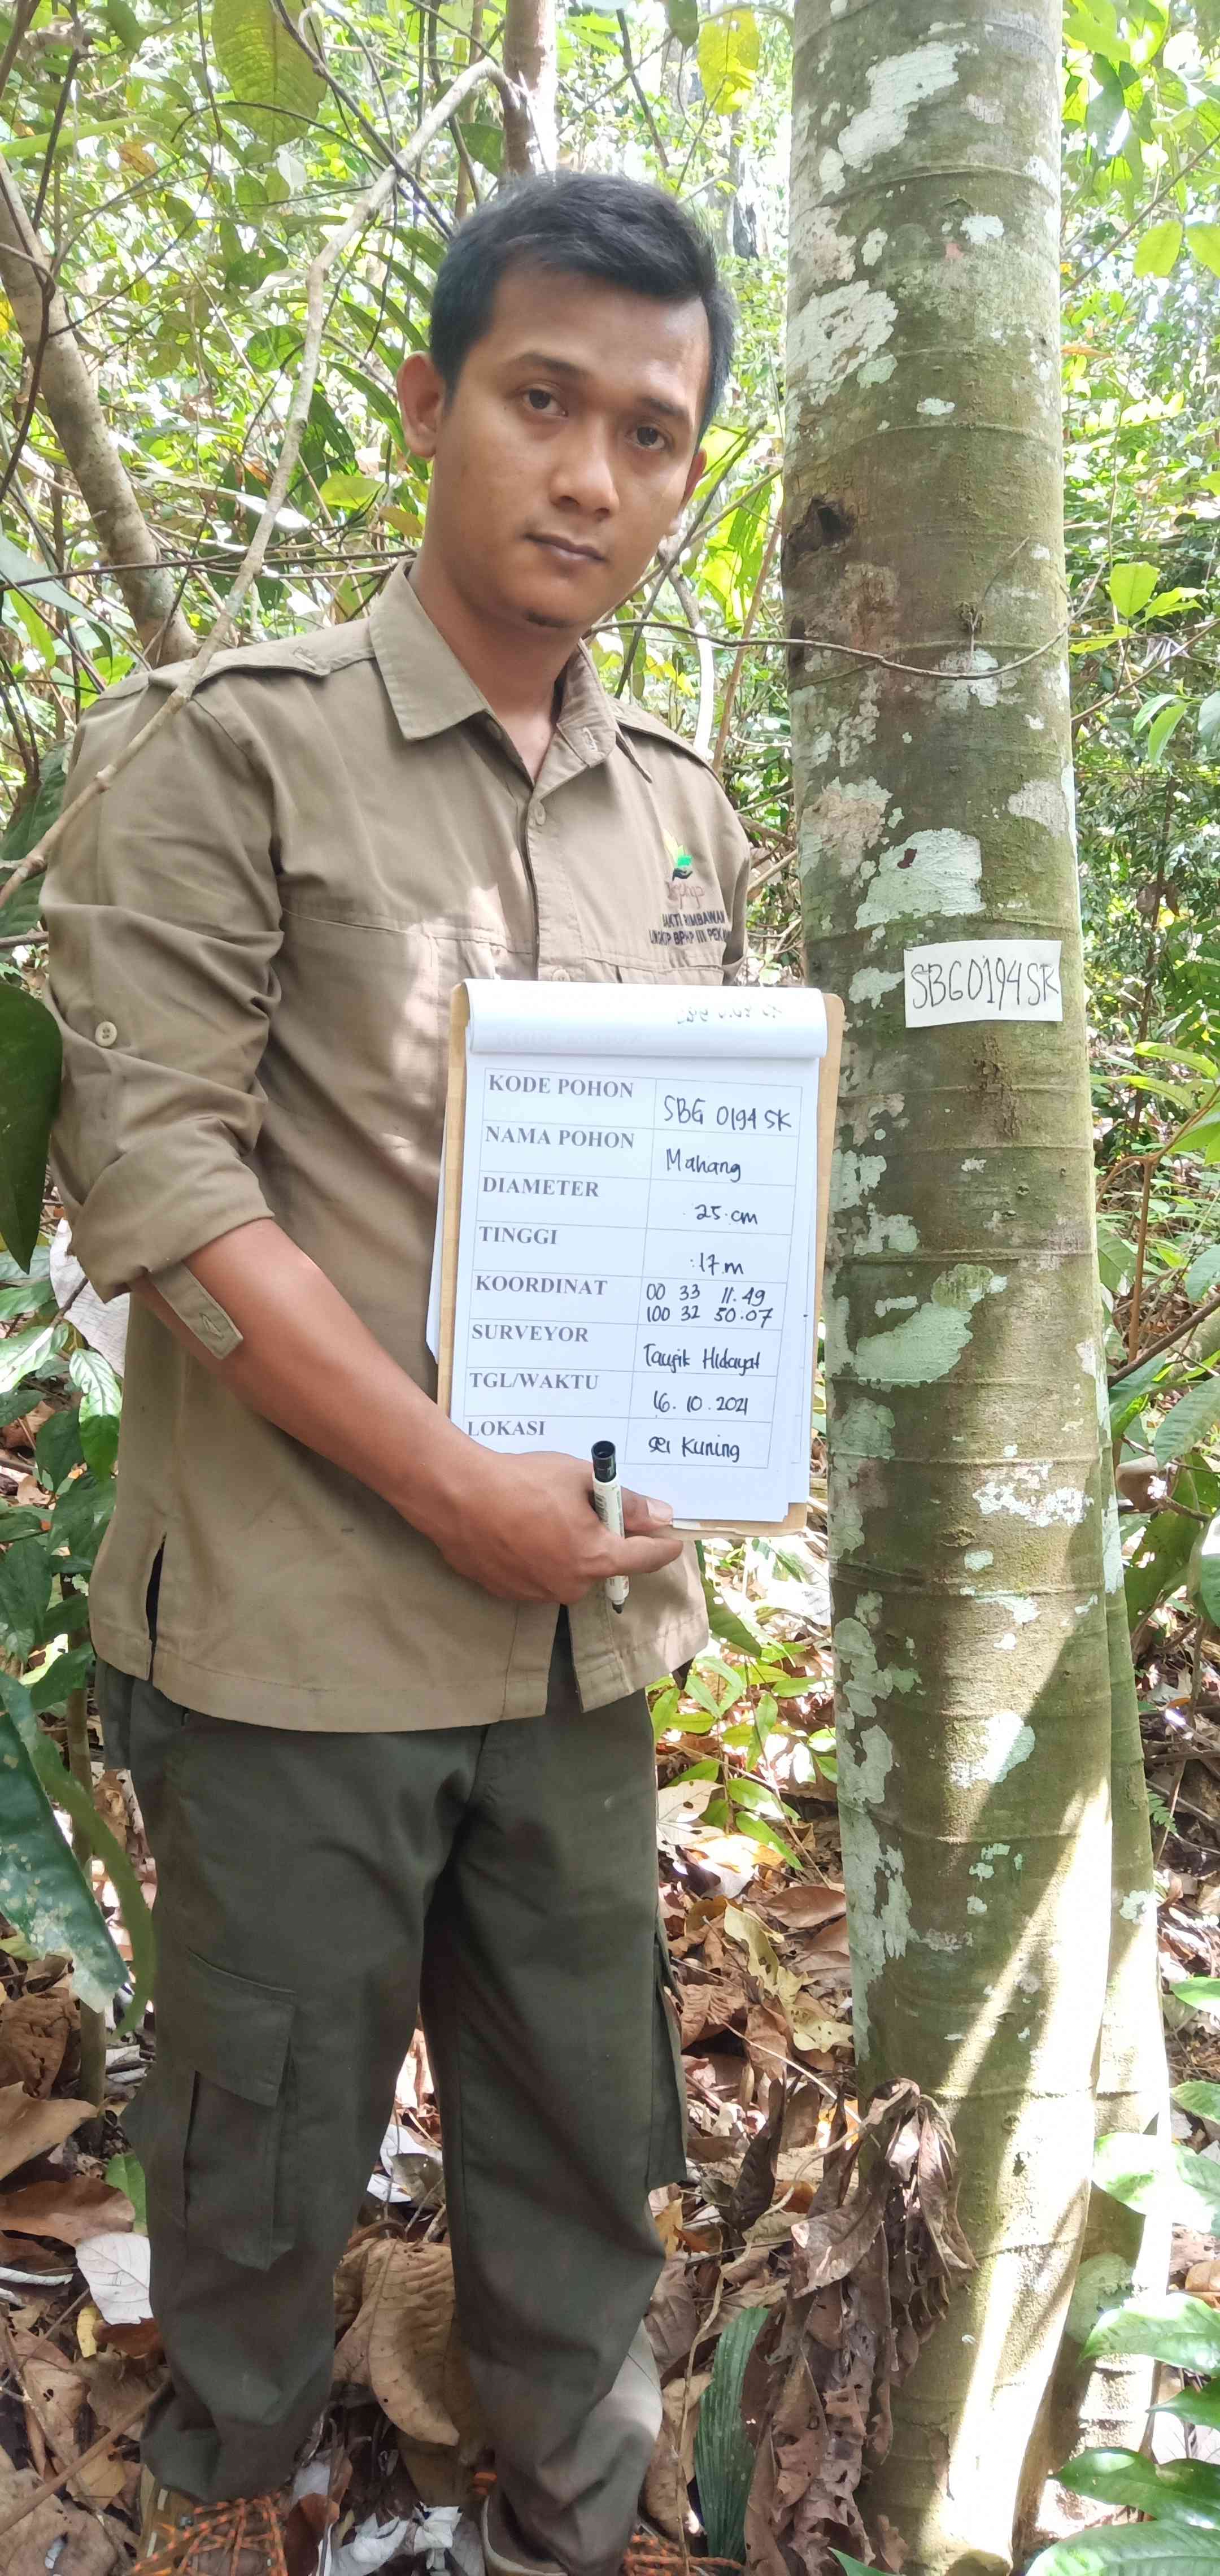 BAKTI RIMBAWAN
BPHP III
SBG0194SK
KODE POHON SBG 0194 SK
NAMA POHON Mahang
DIAMETER 25 cm
TINGGI 17 m
KOORDINAT 00 33 11.49
100 32 50.07
SURVEYOR Taufik Hidayat
TGL/WAKTU 16.10.2021
LOKASI sei Kuning